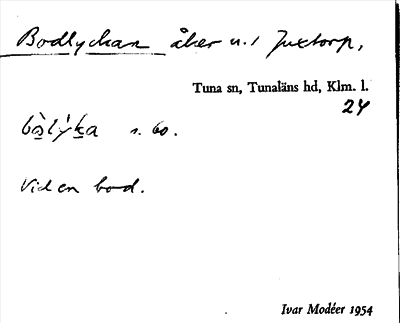 Bodlyckan åker n. 1 Juxtorp,
Tuna sn, Tunaläns hd, Klm. l.
24
s. 60.
Vid en bod.
Ivar Modéer 1954